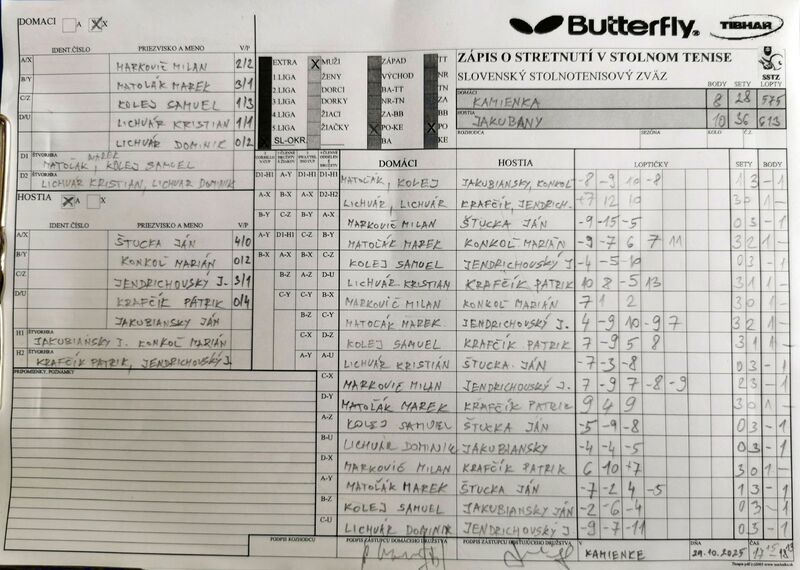 DOMÁCI A X
IDENT.ČÍSLO PRIEZVISKO A MENO V/P
A/X MARKOVIČ MILAN 2/2
B/Y MATOĽÁK MAREK 3/1
C/Z KOLEJ SAMUEL 1/3
D/U LICHVÁR KRISTIAN 1/1
LICHVÁR DOMINIK 0/2
D1 ŠTVORHRA MATOĽÁK MAREK, KOLEJ SAMUEL
D2 ŠTVORHRA LICHVÁR KRISTIAN, LICHVÁR DOMINIK
HOSTIA A X
IDENT.ČÍSLO PRIEZVISKO A MENO V/P
A/X ŠTUCKA JÁN 4/0
B/Y KONKOĽ MARIÁN 0/2
C/Z JENDRICHOVSKÝ J. 3/1
D/U KRAFČÍK PATRIK 0/4
JAKUBIANSKY JÁN
H1 ŠTVORHRA JAKUBIANSKY J. KONKOĽ MARIÁN
H2 ŠTVORHRA KRAFČÍK PATRIK, JENDRICHOVSKÝ J.
PRIPOMIENKY, POZNÁMKY
EXTRA MUŽI ZÁPAD TT
1.LIGA ŽENY VÝCHOD NR
2.LIGA DORCI BA-TT
3.LIGA DORKY NR-TN ZA
4.LIGA ŽIACI ZA-BB
5.LIGA ŽIAČKY PO-KE PO
SL-OKR. BA KE
Butterfly TIBHAR
ZÁPIS O STRETNUTÍ V STOLNOM TENISE
SLOVENSKÝ STOLNOTENISOVÝ ZVÄZ
SSTZ
BODY SETY LOPTY
DOMÁCI KAMIENKA 8 28 575
HOSTIA JAKUBANY 10 36 613
ROZHODCA SEZÓNA KOLO Č.
DOMÁCI HOSTIA LOPTIČKY SETY BODY
MATOĽÁK, KOLEJ JAKUBIANSKY, KONKOĽ -8 -9 10 -8 1 3 - 1
LICHVÁR, LICHVÁR KRAFČÍK, JENDRICH. +7 12 10 3 0 1 -
MARKOVIČ MILAN ŠTUCKA JÁN -9 -15 -5 0 3 - 1
MATOĽÁK MAREK KONKOĽ MARIÁN -9 -7 6 7 11 3 2 1 -
KOLEJ SAMUEL JENDRICHOVSKÝ J. -4 -5 -10 0 3 - 1
LICHVÁR KRISTIAN KRAFČÍK PATRIK 10 8 -5 13 3 1 1 -
MARKOVIČ MILAN KONKOĽ MARIAN 7 1 2 3 0 1 -
MATOĽÁK MAREK JENDRICHOVSKÝ J. 4 -9 10 -9 7 3 2 1 -
KOLEJ SAMUEL KRAFČÍK PATRIK 7 -9 5 8 3 1 1 -
LICHVÁR KRISTIÁN ŠTUCKA JÁN -7 -3 -8 0 3 - 1
MARKOVIČ MILAN JENDRICHOVSKÝ J. 7 -9 7 -8 -9 2 3 - 1
MATOĽÁK MAREK KRAFČÍK PATRIK 9 4 9 3 0 1 -
KOLEJ SAMUEL ŠTUCKA JÁN -5 -9 -8 0 3 - 1
LICHVÁR DOMINIK JAKUBIANSKY -4 -4 -5 0 3 - 1
MARKOVIČ MILAN KRAFČÍK PATRIK 6 10 +7 3 0 1 -
MATOĽÁK MAREK ŠTUCKA JÁN -7 -2 4 -5 1 3 - 1
KOLEJ SAMUEL JAKUBIANSKY JÁN -2 -6 -4 0 3 - 1
LICHVÁR DOMINIK JENDRICHOVSKÝ J. -9 -7 -11 0 3 - 1
PODPIS ROZHODCU PODPIS ZÁSTUPCU DOMÁCEHO DRUŽSTVA PODPIS ZÁSTUPCU HOSŤUJÚCEHO DRUŽSTVA V KAMIENKE DŇA 29.10.2025 ČAS